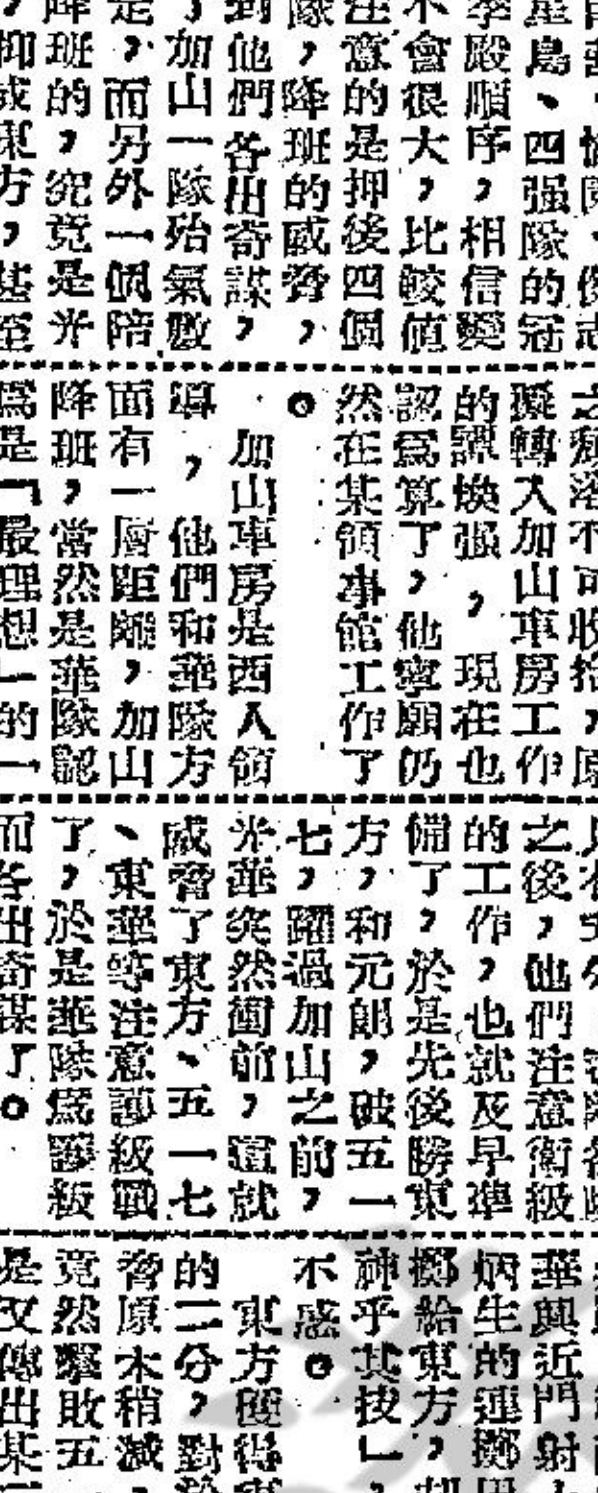 星島、四强隊的冠
季殿順序，相信變
不會很大，比較値
注意的是押後四個
隊，降班的威脅，
到他們各出奇謀，
了加山一隊殆氣數
是，而另外一個陪
降班的，究竟是光
抑或東方，甚至
擬轉入加山車房工作
的譚煥强，現在也
認爲算了，他寧願仍
然在某領事館工作了
。
加山車房是西人領
導，他們和華隊方
面有一層距離，加山
降班，當然是華隊認
爲是「最理想」的一
之後，他們注意衛級
的工作，也就及早準
備了，於是先後勝東
方，和元朗，破五一
七，躍過加山之前，
光華突然衝前，這就
威脅了東方、五一七
、東華等注意護級戰
了，於是華隊爲護級
而各出奇謀了。
華興近門射
炳生的連擲
擲給東方，
神乎其技」，
不惑。
東方獲得
的二分，對
脅原本稍減
竟然擊敗五
是又傳出某